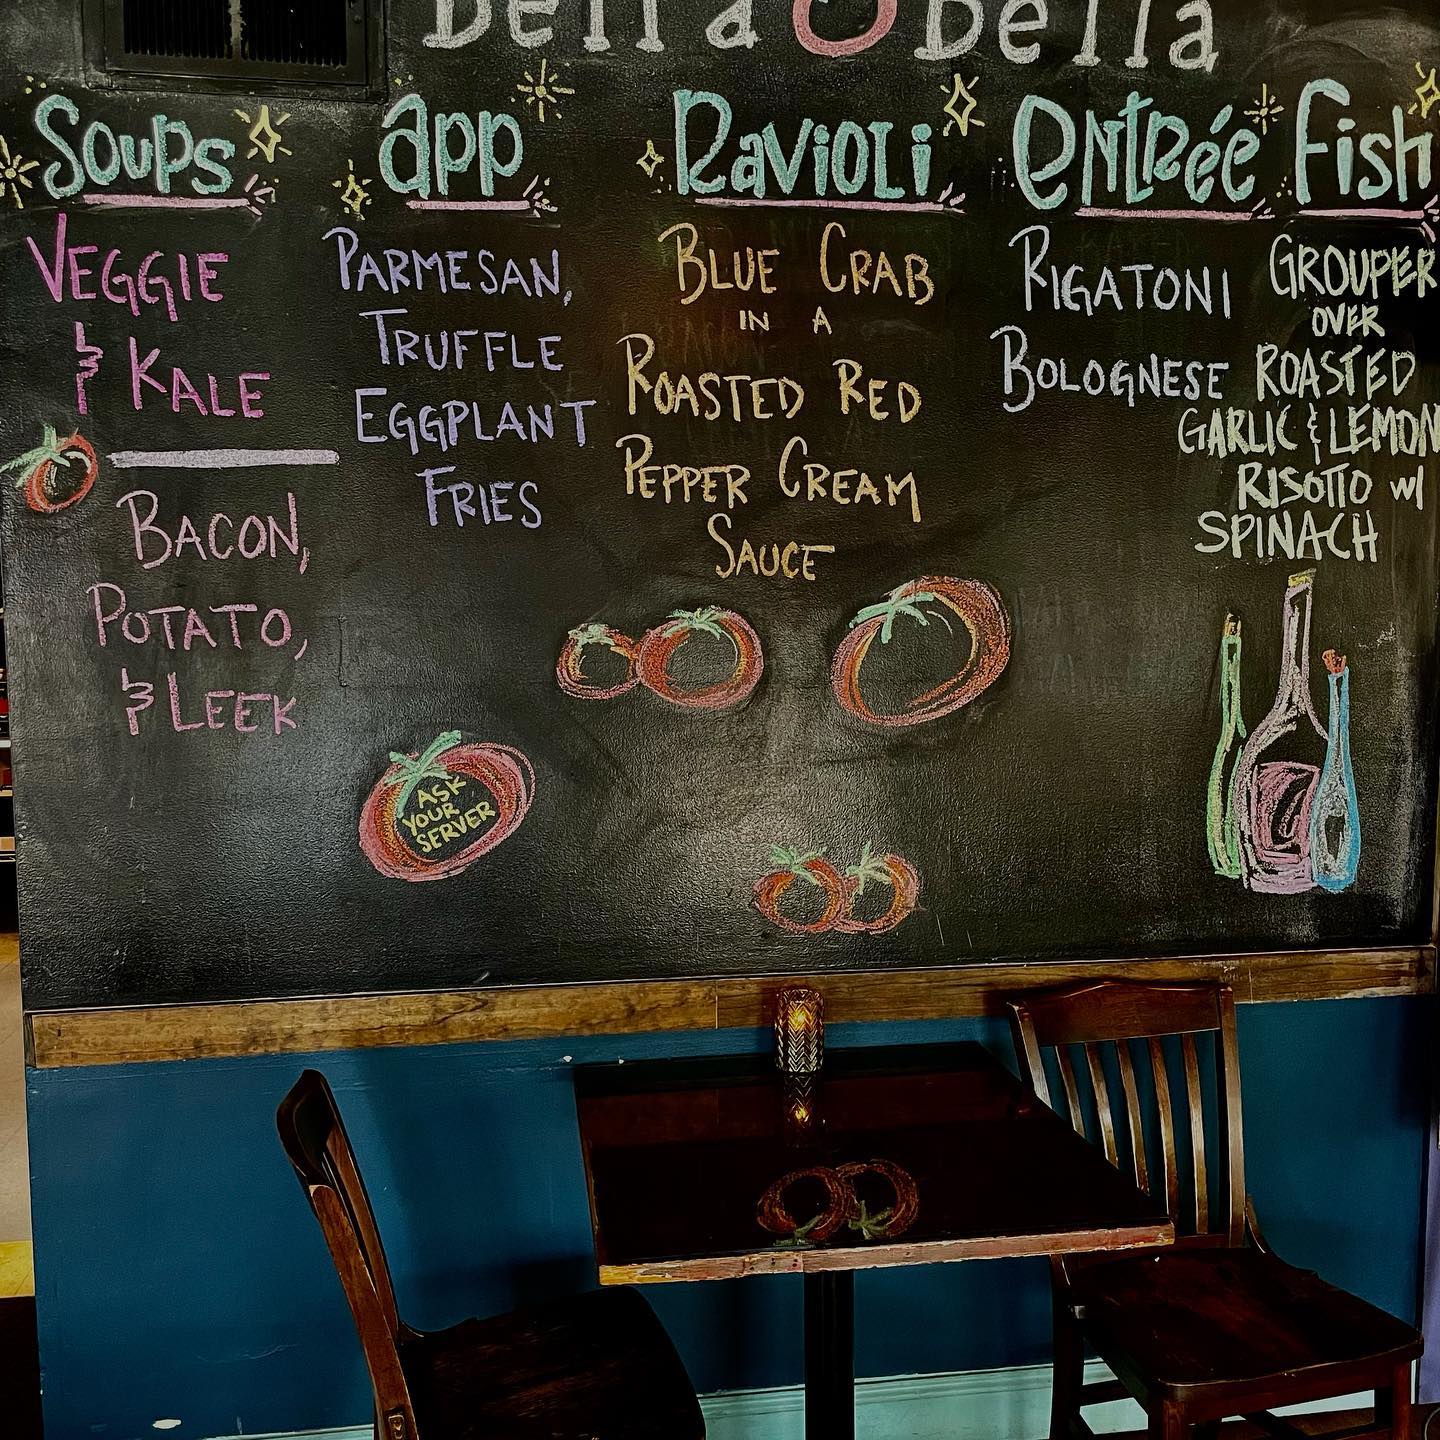 Bella Bella
Soups
VEGGIE
& KALE
BACON,
POTATO,
& LEEK
app
PARMESAN,
TRUFFLE
EGGPLANT
FRIES
Ravioli
BLUE CRAB
IN A
ROASTED RED
PEPPER CREAM
SAUCE
entrée
RIGATONI
BOLOGNESE
fish
GROUPER
OVER
ROASTED
GARLIC & LEMON
RISOTTO w/
SPINACH
ASK
YOUR
SERVER